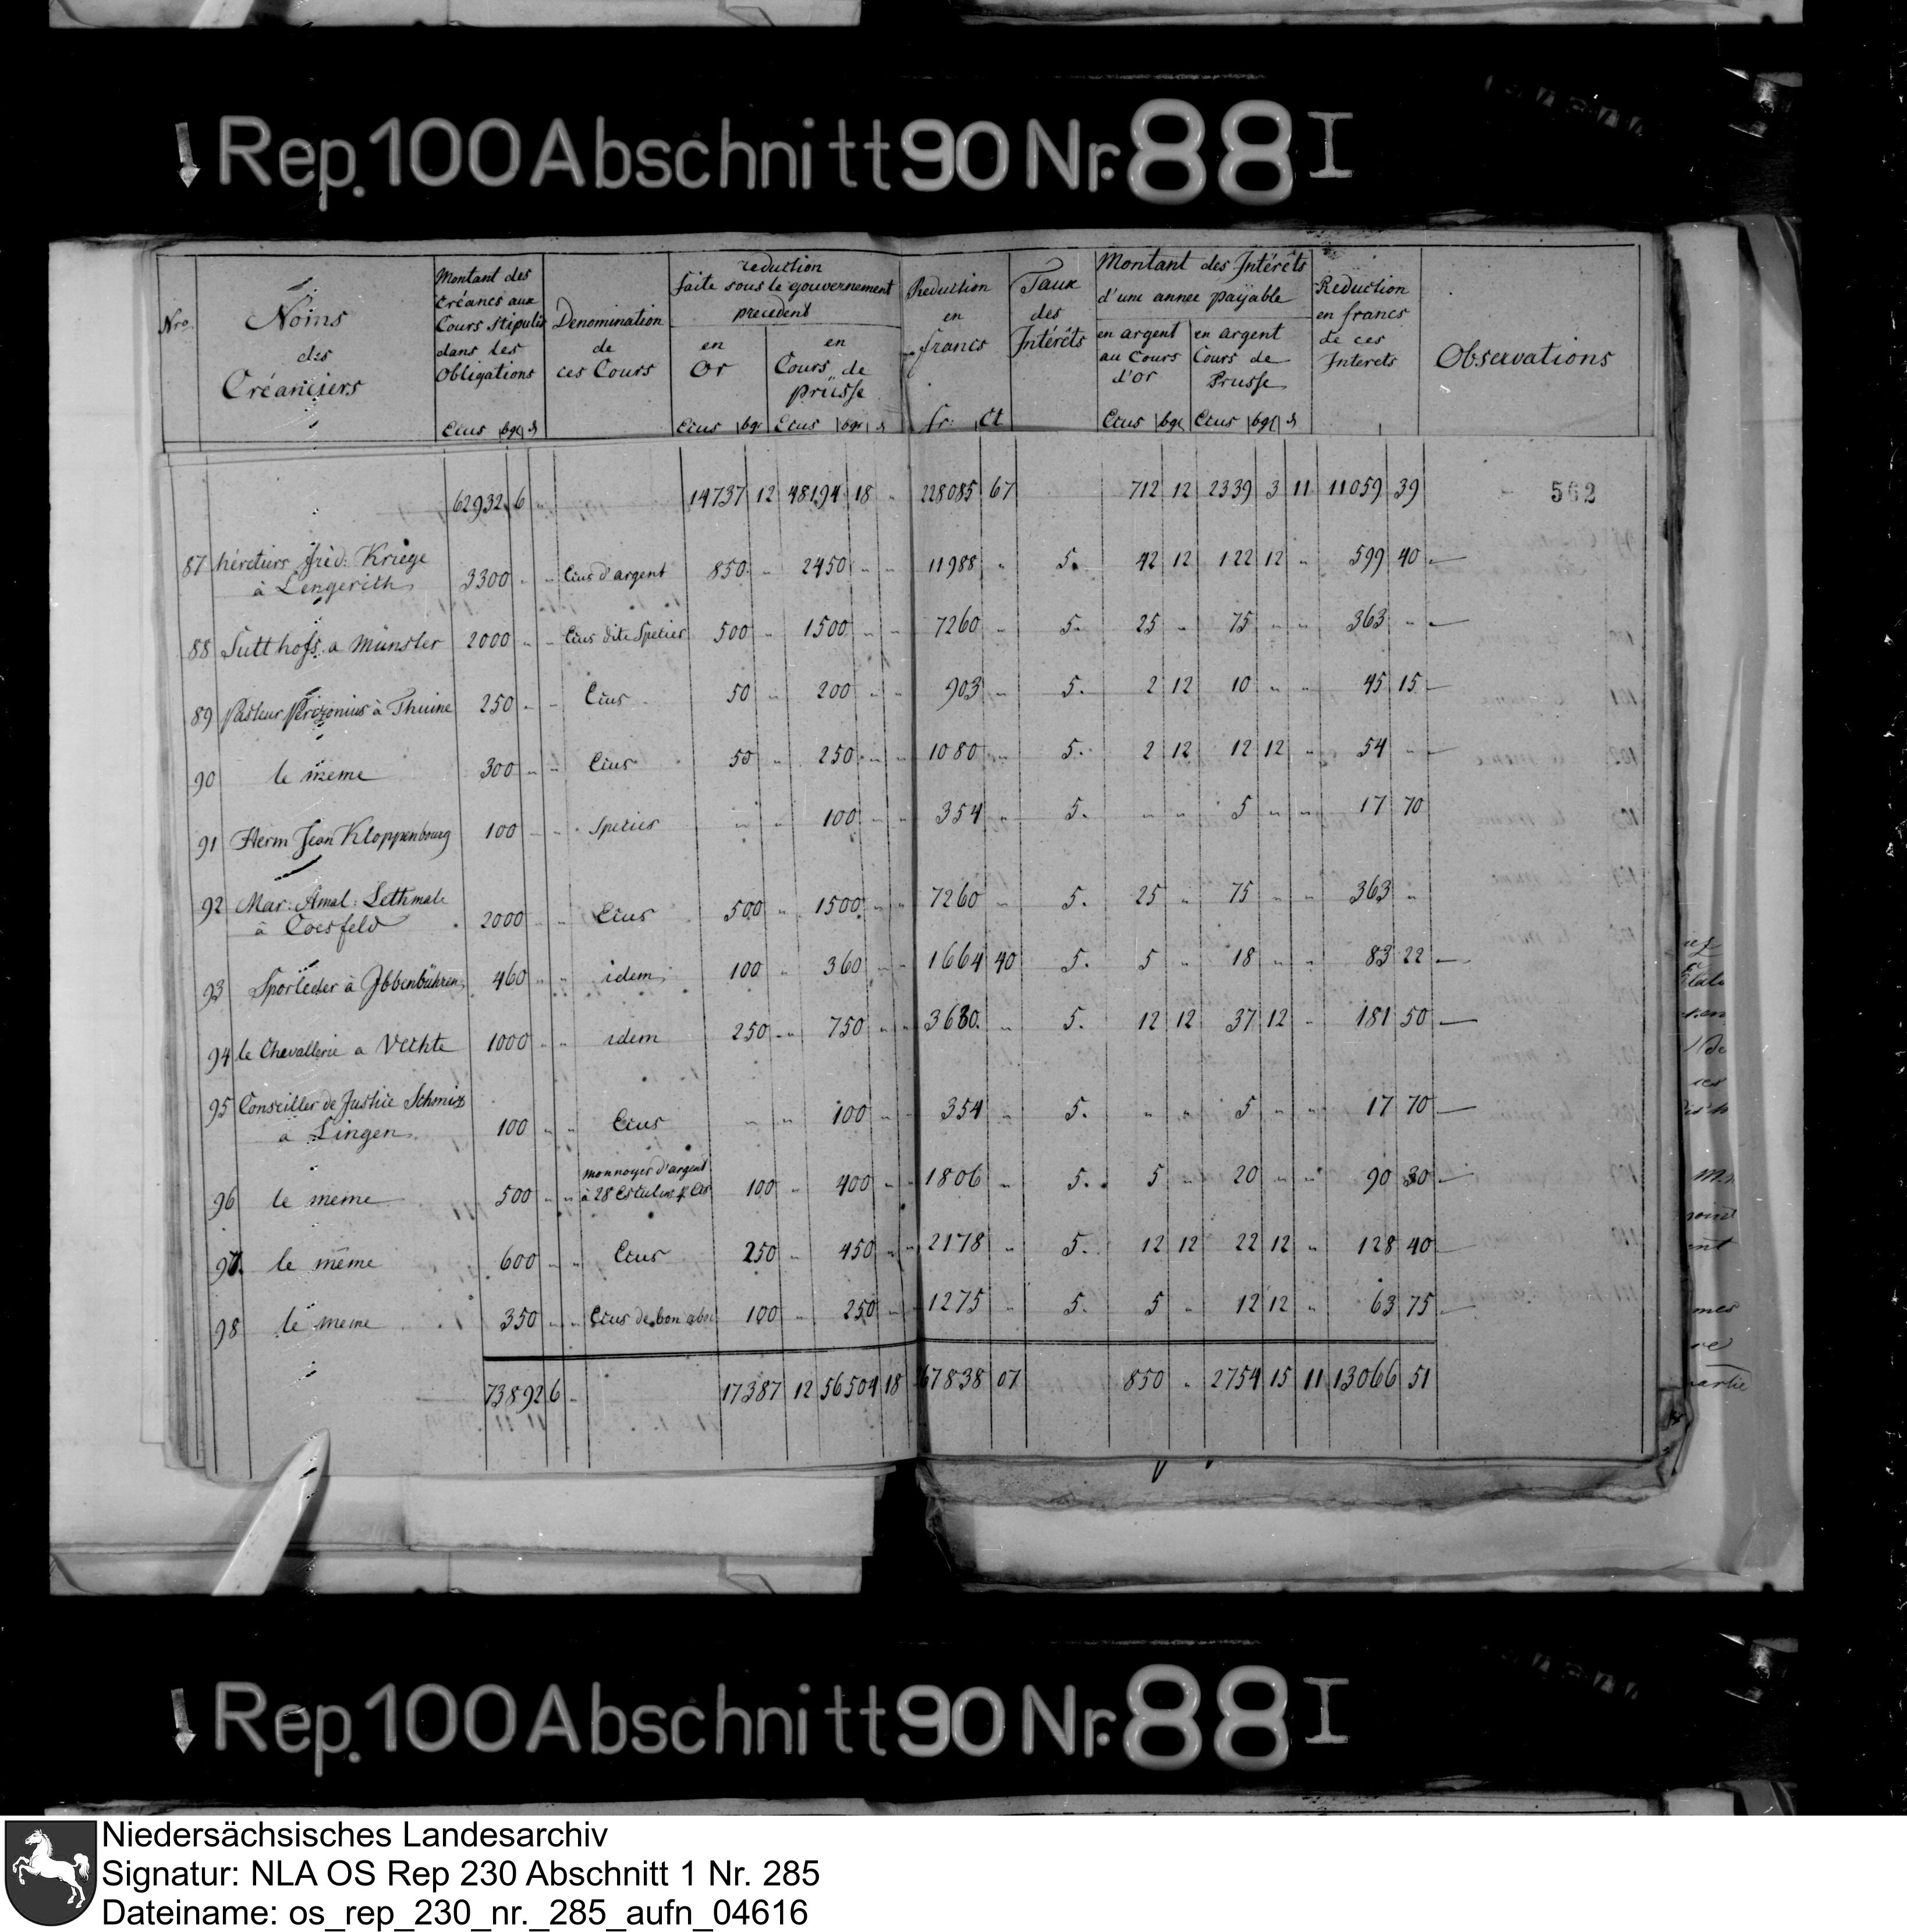 Rep. 100 Abschnitt 90 Nr. 88 I
Nro. | Noms des Créanciers | Montant des Créances aux Cours stipulés dans les Obligations | Denomination de ces Cours | reduction faite sous le gouvernement precedent | Reduction en francs | Taux des Intérêts | Montant des Intérêts d'une annee payable | Reduction en francs de ces Interets | Observations
en Or | en Cours de prüsse | en argent au Cours d'or | en argent Cours de Prusse
Ecus | bgr | d | Ecus | bgr | Ecus | bgr | d | fr: | Ct | Ecus | bgr | Ecus | bgr | d
62932 | 6 | " | 14737 | 12 | 48194 | 18 | " | 228085 | 67 | 712 | 12 | 2339 | 3 | 11 | 11059 | 39 | 562
87 | héretiers fréd: Kriege
à Lengerich | 3300 | " | " | Ecus d'argent | 850 | " | 2450 | " | " | 11988 | " | 5. | 42 | 12 | 122 | 12 | " | 599 | 40 —
88 | Sutthoff a Münster | 2000 | " | " | Ecus dite Species | 500 | " | 1500 | " | " | 7260 | " | 5. | 25 | " | 75 | " | " | 363 | " —
89 | Pasteur Perizonius à Thuine | 250 | " | " | Ecus | 50 | " | 200 | " | " | 903 | " | 5. | 2 | 12 | 10 | " | " | 45 | 15 —
90 | le meme | 300 | " | " | Ecus | 50 | " | 250 | " | " | 1080 | " | 5. | 2 | 12 | 12 | 12 | " | 54 | " —
91 | Herm Jean Kloppenbourg | 100 | " | " | Species | " | " | 100 | " | " | 354 | " | 5. | " | " | 5 | " | " | 17 | 70
92 | Mar: Amal: Lethmate
à Coesfeld | 2000 | " | " | Ecus | 500 | " | 1500 | " | " | 7260 | " | 5. | 25 | " | 75 | " | " | 363 | "
93 | Sporleder à Ibbenbühren | 460 | " | " | idem | 100 | " | 360 | " | " | 1664 | 40 | 5. | 5 | " | 18 | " | " | 83 | 22 —
94 | le Chevallerie a Vechte | 1000 | " | " | idem | 250 | " | 750 | " | " | 3630. | " | 5. | 12 | 12 | 37 | 12 | " | 181 | 50 —
95 | Conseiller de Justice Schmiz
a Lingen | 100 | " | " | Ecus | " | " | 100 | " | " | 354 | " | 5. | " | " | 5 | " | " | 17 | 70 —
96 | le meme | 500 | " | " | monnoyes d'argent
à 28 | 100 | " | 400 | " | " | 1806 | " | 5. | 5 | " | 20 | " | " | 90 | 30 —
97. | le même | 600 | " | " | Ecus | 250 | " | 450 | " | " | 2178 | " | 5. | 12 | 12 | 22 | 12 | " | 128 | 40
98 | le meme | 350 | " | " | Ecus de bon | 100 | " | 250 | " | " | 1275 | " | 5. | 5 | " | 12 | 12 | " | 63 | 75 —
73892 | 6 | " | 17387 | 12 | 56504 | 18 | 67838 | 07 | 850 | " | 2754 | 15 | 11 | 13066 | 51
Rep. 100 Abschnitt 90 Nr. 88 I
Niedersächsisches Landesarchiv
Signatur: NLA OS Rep 230 Abschnitt 1 Nr. 285
Dateiname: os_rep_230_nr._285_aufn_04616